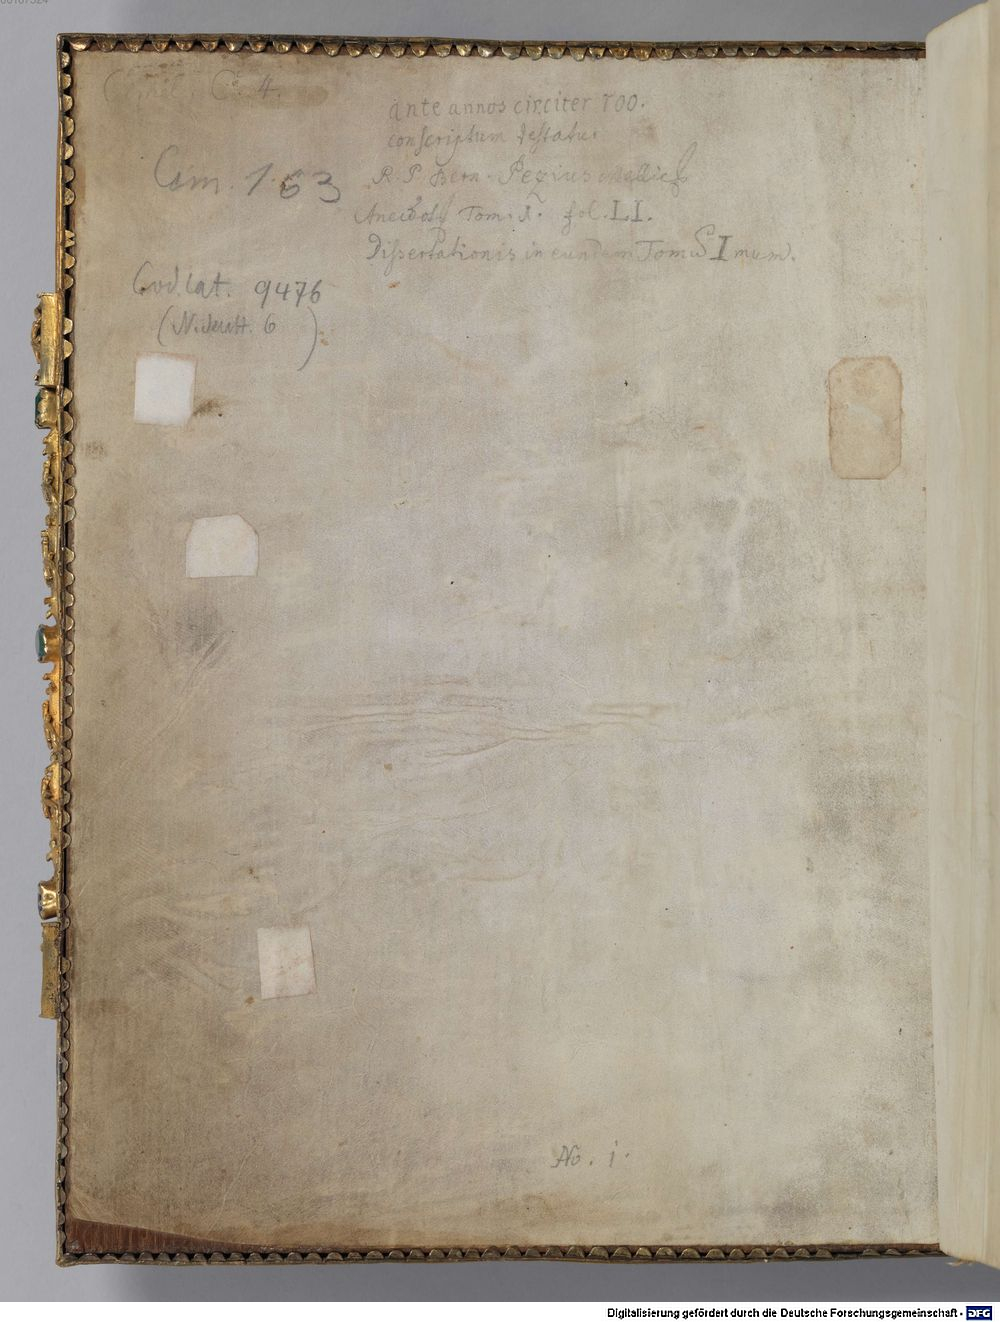 Cimel. C. 4.
ante annos circiter 700.
conscriptum testatur
Cim. 163
R. P. Bern. Pezius Mellic
Anecdot Tom. I. fol. LI.
Dissertationis in eundem Tomu I mum.
Cod. lat. 9476
6
No. 1.
Digitalisierung gefördert durch die Deutsche Forschungsgemeinschaft - DFG